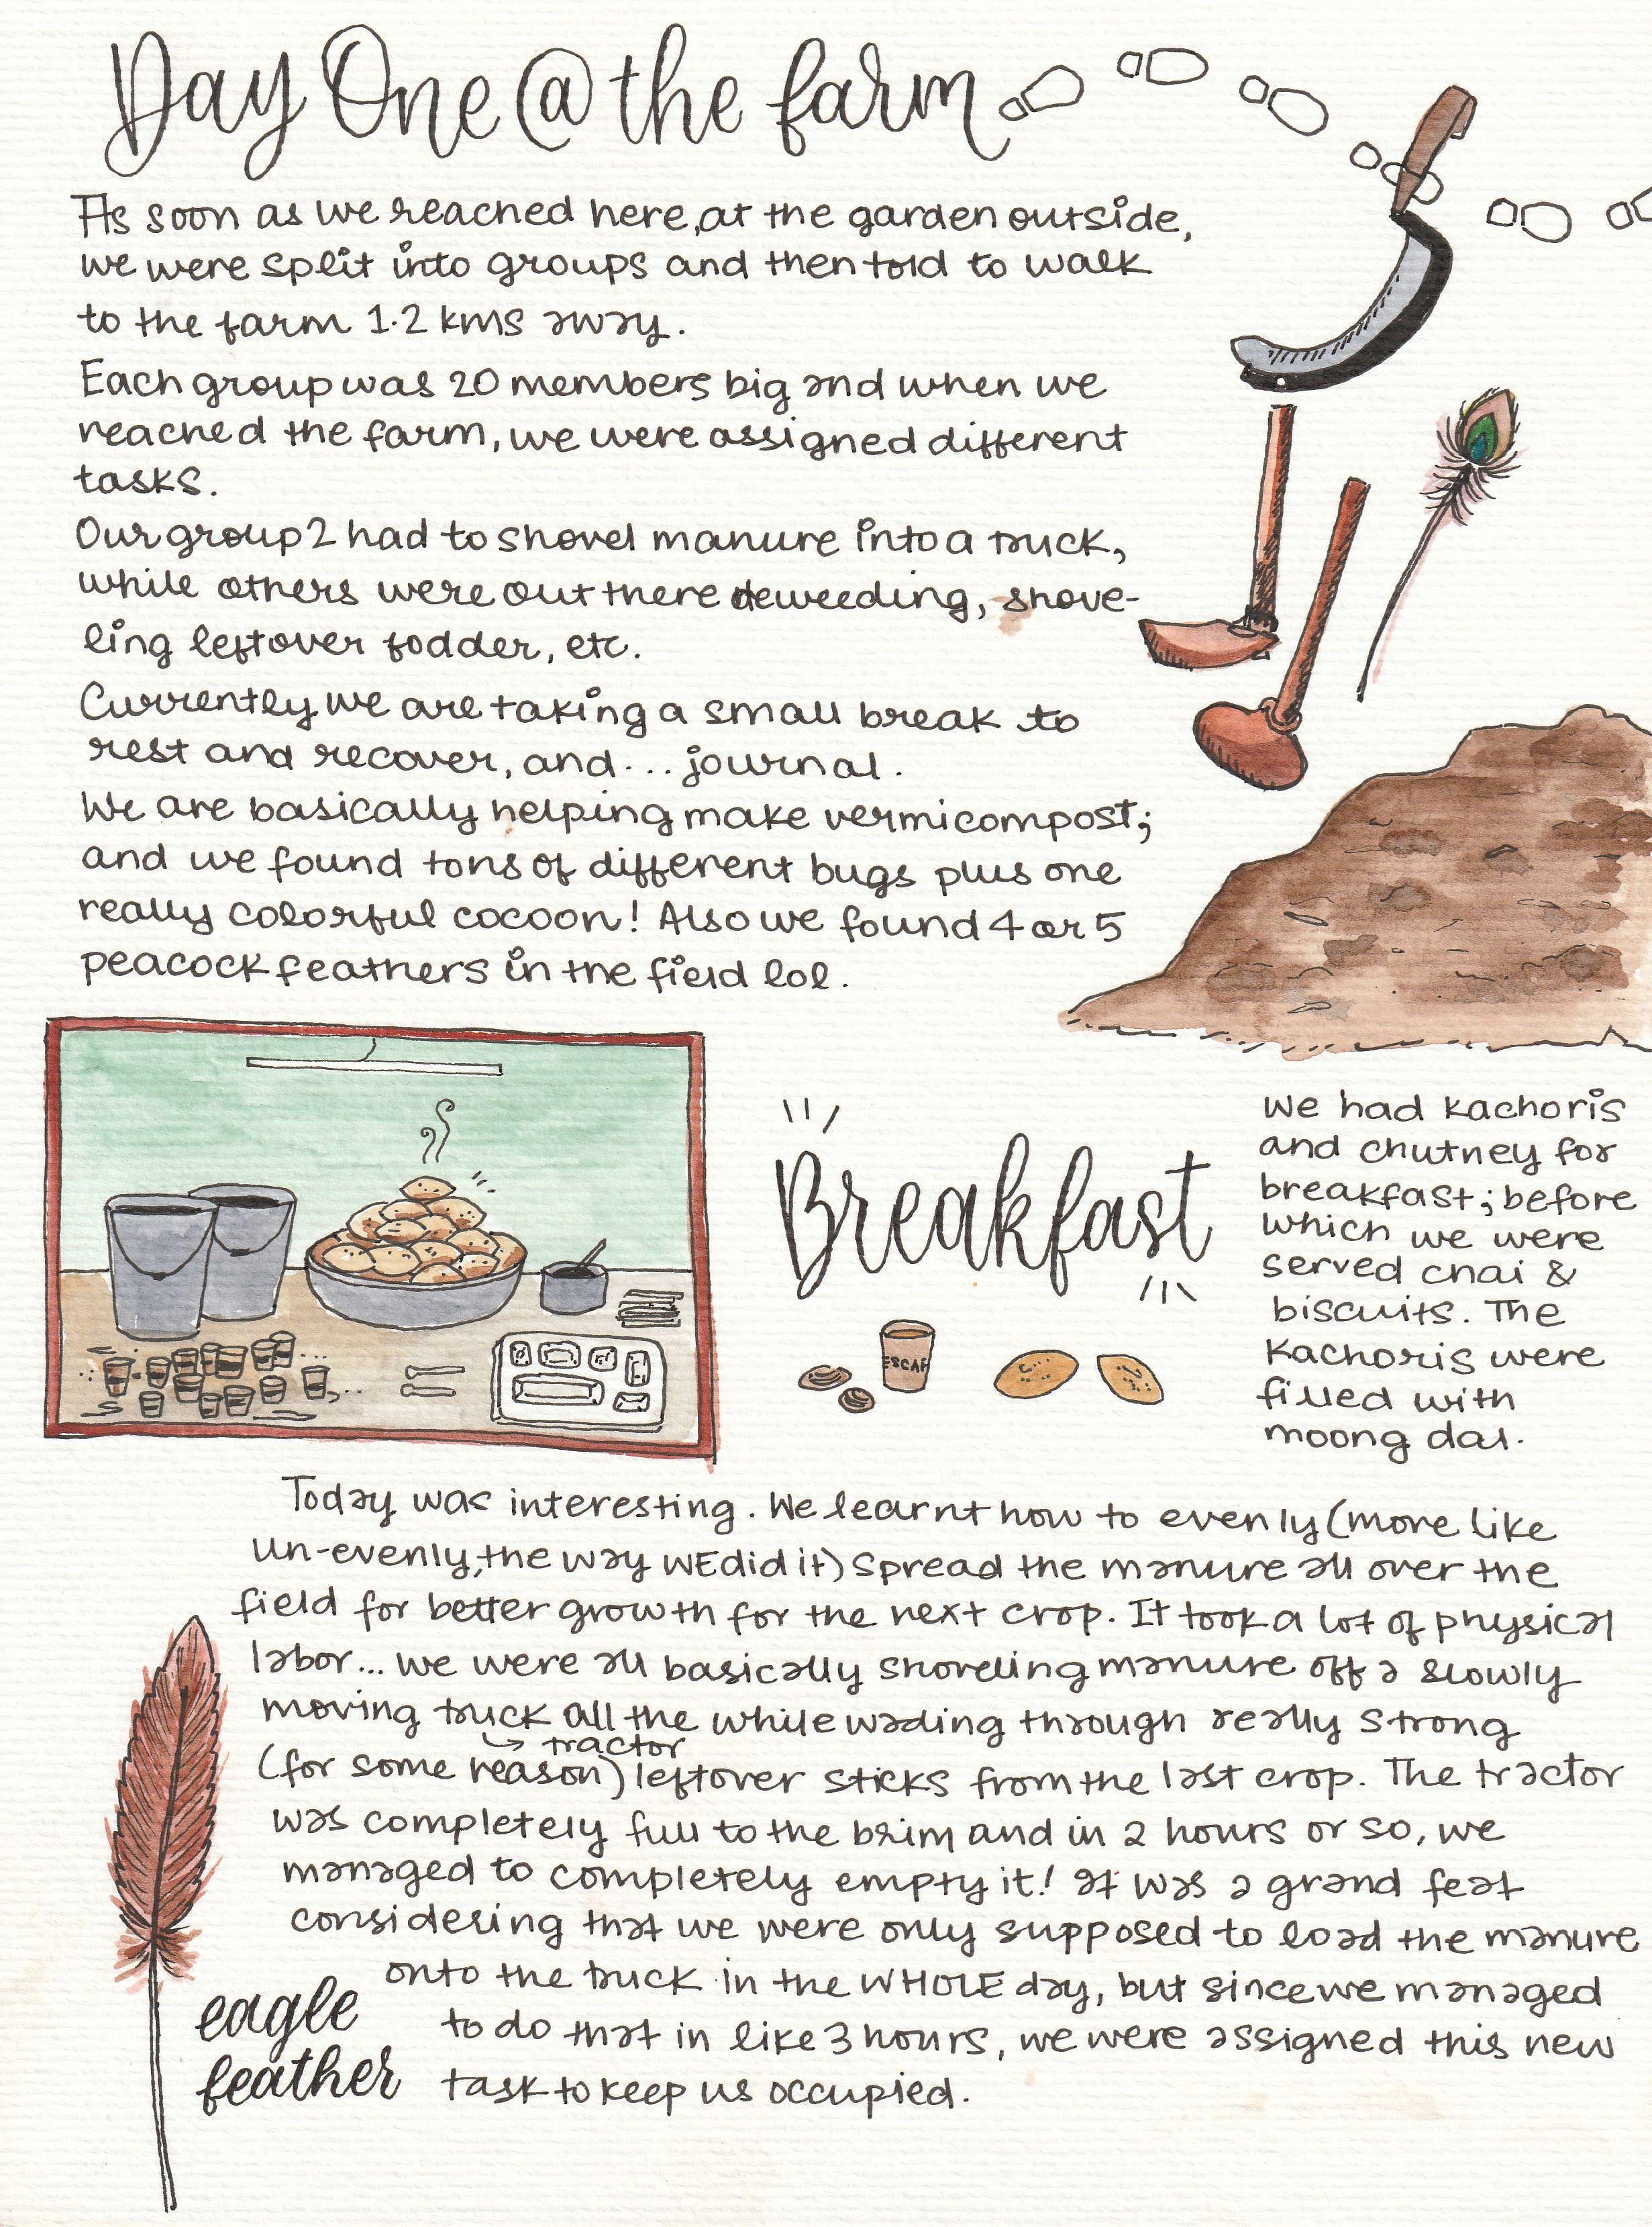 Day One @ the farm
As soon as we reached here, at the garden outside,
we were split into groups and then told to walk
to the farm 1.2 kms away.
Each group was 20 members big and when we
reached the farm, we were assigned different
tasks.
Our group 2 had to shovel manure into a truck,
while others were out there deweeding, shove-
ling leftover fodder, etc.
Currently we are taking a small break to
rest and recover, and... journal.
We are basically helping make vermicompost;
and we found tons of different bugs plus one
really colorful cocoon! Also we found 4 or 5
peacock feathers in the field lol.
Breakfast
ESCAF
We had kachoris
and chutney for
breakfast; before
which we were
served chai &
biscuits. The
kachoris were
filled with
moong dal.
Today was interesting. We learnt how to evenly (more like
un-evenly, the way WE did it) spread the manure all over the
field for better growth for the next crop. It took a lot of physical
labor... we were all basically shoveling manure off a slowly
moving truck all the while wading through really strong
↳ tractor
(for some reason) leftover sticks from the last crop. The tractor
was completely full to the brim and in 2 hours or so, we
managed to completely empty it! It was a grand feat
considering that we were only supposed to load the manure
onto the truck in the WHOLE day, but since we managed
to do that in like 3 hours, we were assigned this new
task to keep us occupied.
eagle
feather